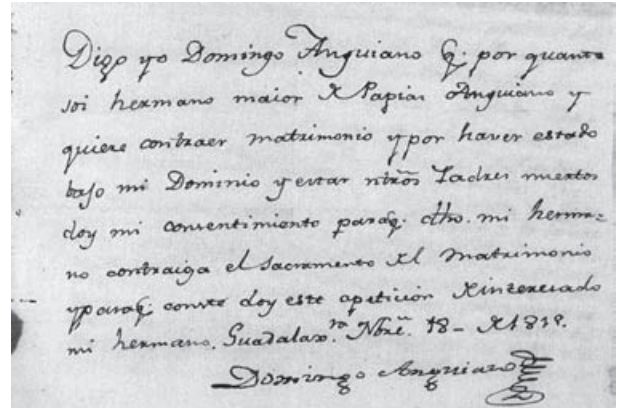 Digo yo Domingo Anguiano q̃. por quanto
soi hermano maior de Papias Anguiano y
quiere contraer matrimonio y por haver estado
bajo mi Dominio y estar ntrõs Padres muertos
doy mi consentimiento paraq̃. dho. mi herma=
no contraiga el Sacramento del Matrimonio
y paraq̃. conste doy este apetición de interesado
mi hermano. Guadalax.ra Nbrẽ. 18 - de 1818.
Domingo Anguiano